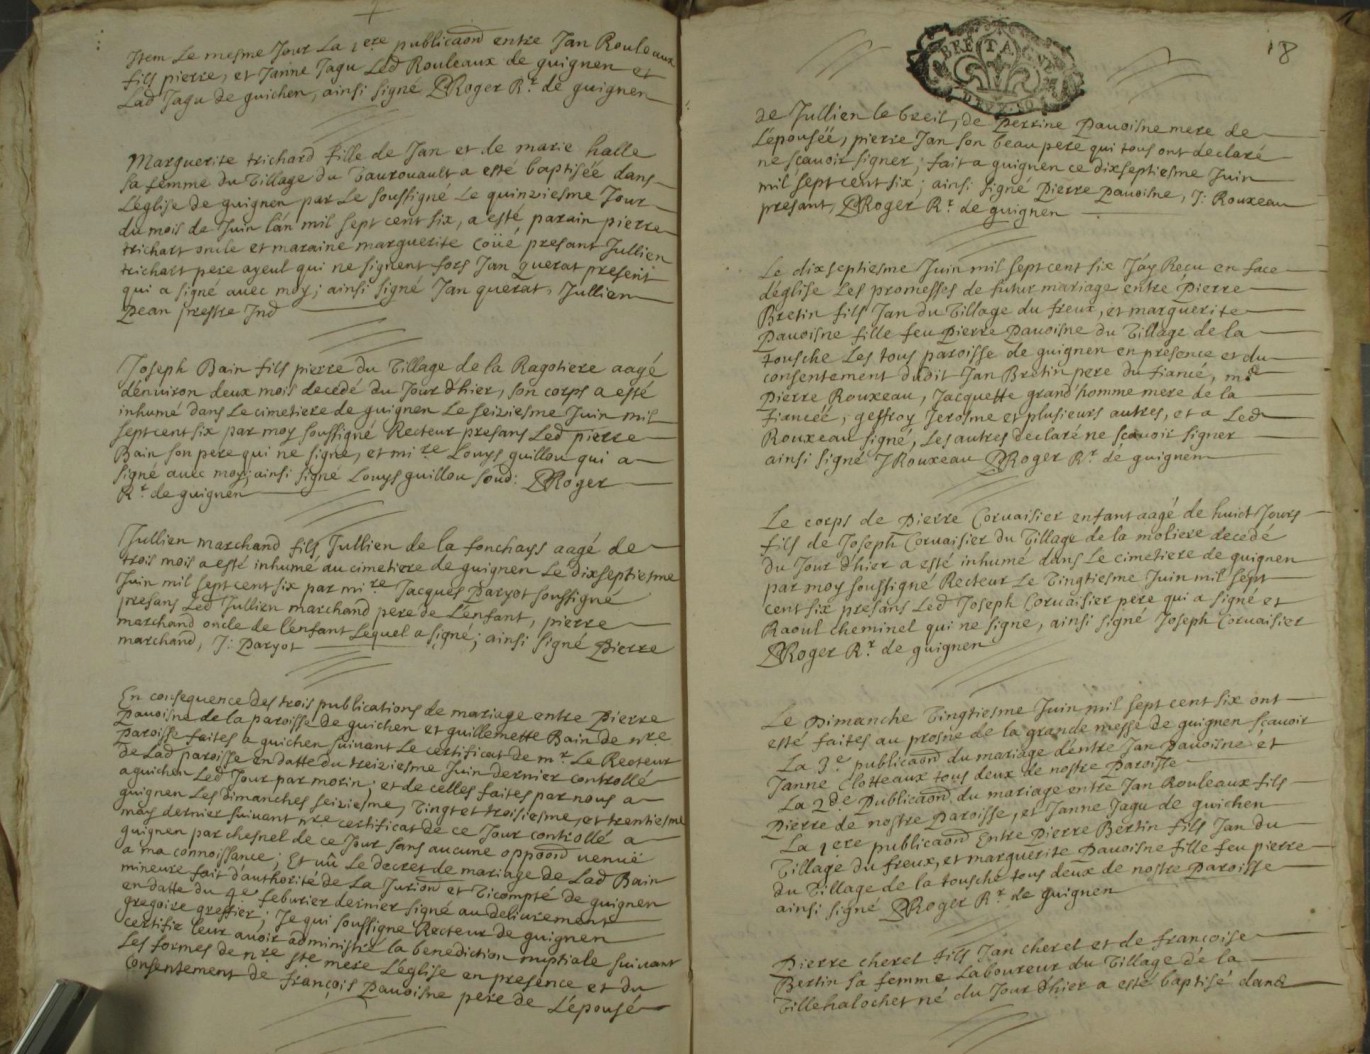 Item Le mesme Jour La 1ere publicaõn entre Jan Rouleaux
fils pierre, et Janne Jagu Led Rouleaux de guignen et
Lad Jagu de guichen, ainsi signé PRoger Rr de guignen
Marguerite trichard fille de Jan et de marie halle
sa femme du Village du Vaurouault a esté baptisée dans
L'eglise de guignen par Le soussigné Le quinziesme Jour
du mois de Juin l'an mil sept cent six, a esté parain pierre
trichart oncle et maraine marguerite Coüé presant Jullien
trichart pere ayeul qui ne signent fors Jan querat present
qui a signé avec moy; ainsi signé Jan querat, Jullien
Pean prestre Ind
Joseph Bain fils pierre du Village de la Ragotiere aagé
d'environ deux mois decedé du Jour d'hier, son corps a esté
inhumé dans Le cimetiere de guignen Le seiziesme Juin mil
sept cent six par moy soussigné Recteur presans Led pierre
Bain son pere qui ne signe, et mi re Louys guillou qui a
signé avec moy; ainsi signé Louys guillou soud: PRoger
Rr de guignen
Jullien marchand fils Jullien de la fonchays aagé de
trois mois a esté inhumé au cimetiere de guignen Le dixseptiesme
Juin mil sept cent six par mi re Jacques Paryot soussigné
presans Led Jullien marchand pere de L'enfant, pierre
marchand oncle de l'enfant Lequel a signé; ainsi signé Pierre
marchand, J: Paryot
En consequence des trois publications de mariage entre Pierre
Pavoisne de la paroisse de guichen et guillemette Bain de nre
Paroisse faites a guichen suivant Le certificat de mr Le Recteur
de Lad paroisse en datte du treiziesme Juin dernier controllé
a guichen Led Jour par morin; et de celles faites par nous a
guignen Les dimanches seiziesme, Vingt et troisiesme, et trentiesme
may dernier suivant nre certificat de ce Jour controllé a
guignen par chesnel de ce Jour sans aucune oppoõn venue
a ma connoissance; Et vû Le decret de mariage de Lad Bain
mineure fait d'authorité de La Jurion et Vicompté de guignen
en datte du 4e feburier dernier signé au delivrement
gregoire greffier; Je qui soussigne Recteur de guignen
certifie leur avoir administré la benediction nuptiale suivant
Les formes de nre ste mere L'eglise en presence et du
Consentement de françois Pavoisne pere de L'épousé
18
BRETAGNE
de Jullien le breil, de Perrine Pavoisne mere de
L'epousée, pierre Jan son beau pere qui tous ont declaré
ne sçavoir signer; fait a guignen ce dixseptiesme Juin
mil sept cent six; ainsi signé Pierre Pavoisne, J: Rouxeau
presant, PRoger Rr de guignen
Le dixseptiesme Juin mil sept cent six J'ay Reçu en face
d'églisse Les promesses de futur mariage entre Pierre
Bretin fils Jan du Village du freux, et marguerite
Pavoisne fille feu Pierre Pavoisne du Village de la
tousche Les tous paroisse de guignen en presence et du
consentement dudit Jan Bretin pere du fiancé, m
Pierre Rouxeau, Jacquette grand'homme mere de la
fiancée; geffroy Jerosme et plusieurs autres, et a Led
Rouxeau signé, Les autres declaré ne sçavoir signer
ainsi signé J Rouxeau PRoger Rr de guignen
Le corps de Pierre Corvaisier enfant aagé de huict Jours
fils de Joseph Corvaisier du Village de la moliere decedé
du Jour d'hier a esté inhumé dans Le cimetiere de guignen
par moy soussigné Recteur Le Vingtiesme Juin mil sept
cent six presans Led Joseph Corvaisier pere qui a signé et
Raoul cheminel qui ne signe, ainsi signé Joseph Corvaisier
PRoger Rr de guignen
Le Dimanche Vingtiesme Juin mil sept cent six ont
esté faites au prosne de la grande messe de guignen sçavoir
La 3e publicaõn du mariage d'entre Jan Pavoisne et
Janne Clotteaux tous deux de nostre Paroisse
La 2de Publicaõn du mariage entre Jan Rouleaux fils
Pierre de nostre Paroisse, et Janne Jagu de guichen
La 1ere publicaõn Entre Pierre Bertin fils Jan du
Village du freux, et marguerite Pavoisne fille feu pierre
du Village de la tousche tous deux de nostre Paroisse
ainsi signé PRoger Rr de guignen
Pierre cherel fils Jan cherel et de françoise
Bertin sa femme Laboureur du Village de la
Villehalochet né du Jour d'hier a esté baptisé dans